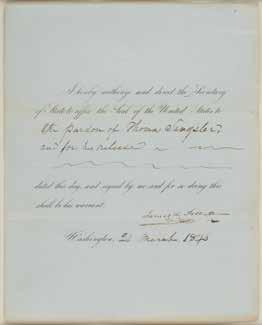 I hereby authorize and direct the Secretary
of State to affix the Seal of the United States to
the pardon of Thomas
and for his release
dated this day, and signed by me and for so doing this
shall be his warrant.
Washington, 2 184